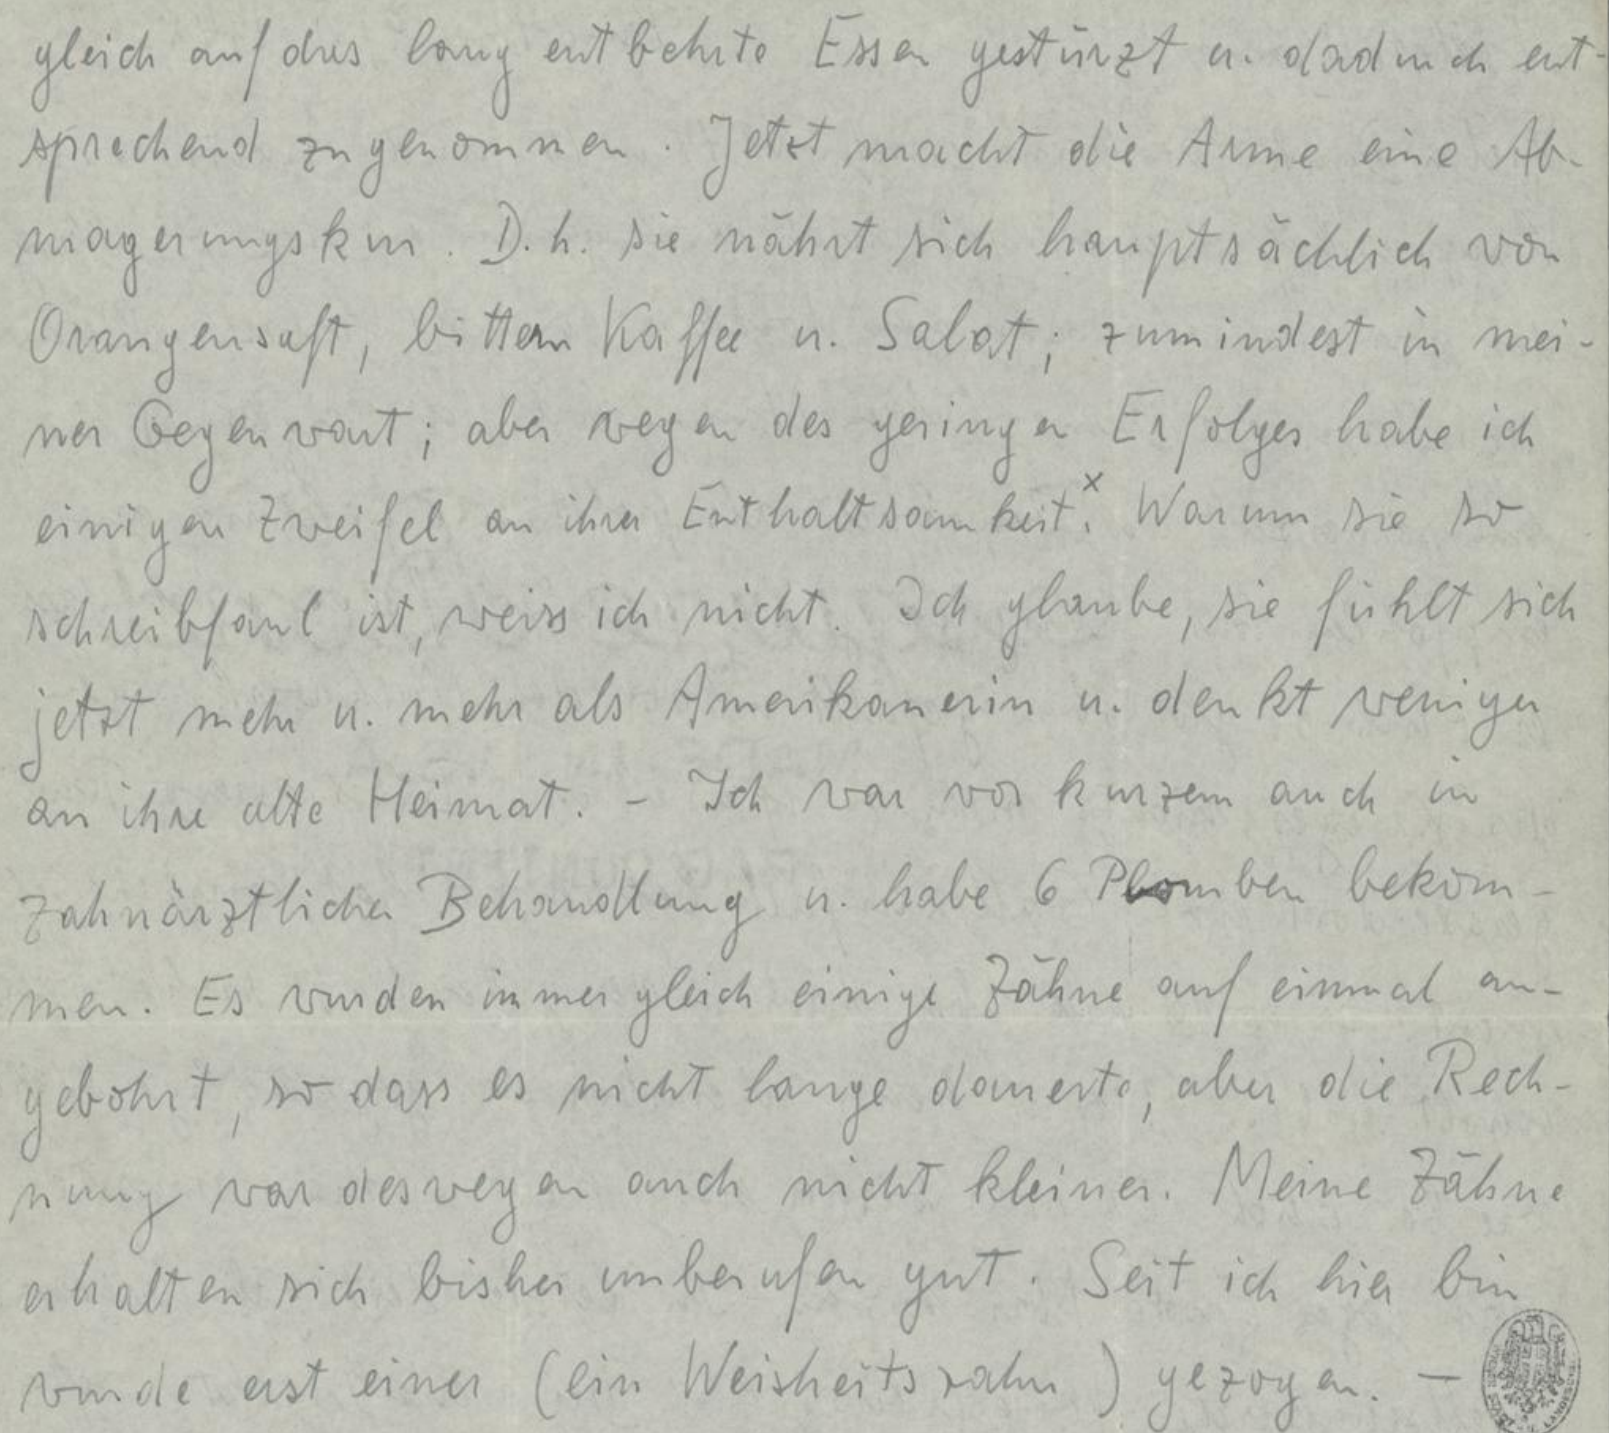 gleich auf das lang entbehrte Essen gestürzt u. dadurch ent-
sprechend zugenommen. Jetzt macht die Arme eine Ab-
magerungskur. D.h. sie nährt sich hauptsächlich von
Orangensaft, bittern Kaffee u. Salat; zumindest in mei-
ner Gegenwart; aber wegen des geringen Erfolges habe ich
einigen Zweifel an ihrer Enthaltsamkeit.x Warum sie so
schreibfaul ist, weiss ich nicht. Ich glaube, sie fühlt sich
jetzt mehr u. mehr als Amerikanerin u. denkt weniger
an ihre alte Heimat. - Ich war vor kurzem auch in
zahnärztlicher Behandlung u. habe 6 Plomben bekom-
men. Es wurden immer gleich einige Zähne auf einmal an-
gebohrt, so dass es nicht lange dauerte, aber die Rech-
nung war deswegen auch nicht kleiner. Meine Zähne
erhalten sich bisher unberufen gut. Seit ich hier bin
wurde erst einer (ein Weisheitszahn) gezogen. —